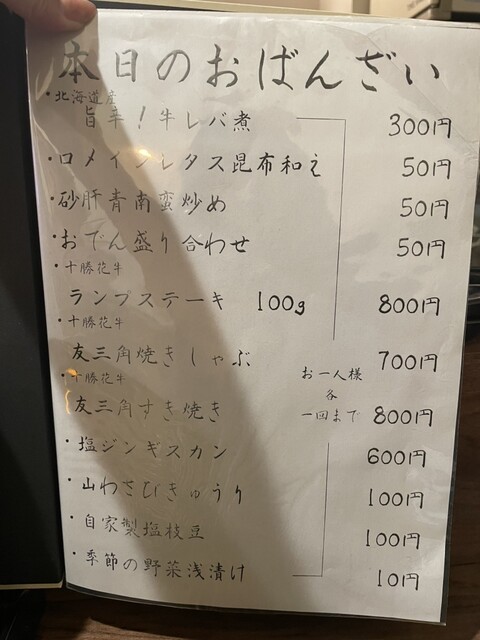 本日のおばんざい
・北海道産
旨辛！牛レバ煮 300円
・ロメインレタス昆布和え 50円
・砂肝青南蛮炒め 50円
・おでん盛り合わせ 50円
・十勝花牛
ランプステーキ 100g 800円
・十勝花牛
友三角焼きしゃぶ 700円
お一人様
各
一回まで
・十勝花牛
友三角すき焼き 800円
・塩ジンギスカン 600円
・山わさびきゅうり 100円
・自家製塩枝豆 100円
・季節の野菜浅漬け 10円